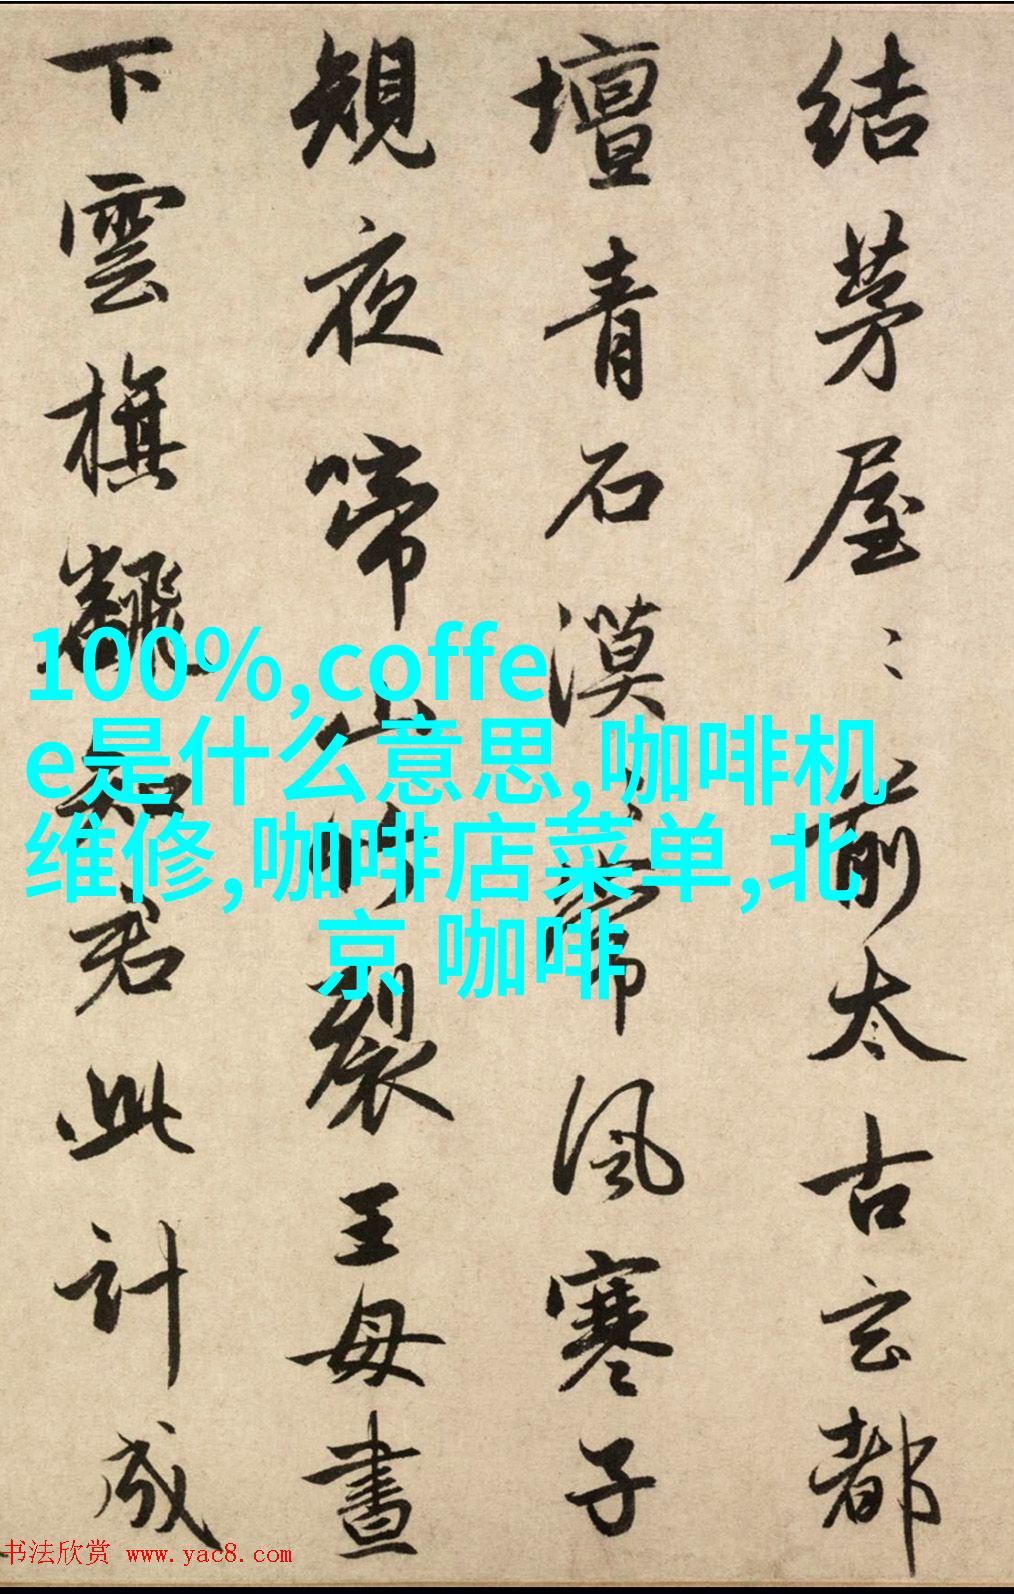 結茅屋〻前太古玄都
壇青石漠〻常風寒子
規夜啼山竹裂王母晝
下雲旗飜知君此計成
100%,coffe
e是什么意思,咖啡机
维修,咖啡店菜单,北
京 咖啡
书法欣赏 www.yac8.com